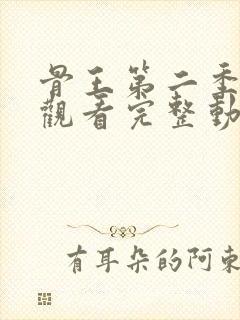 骨王第二季
觀看完整動
有耳朵的阿東